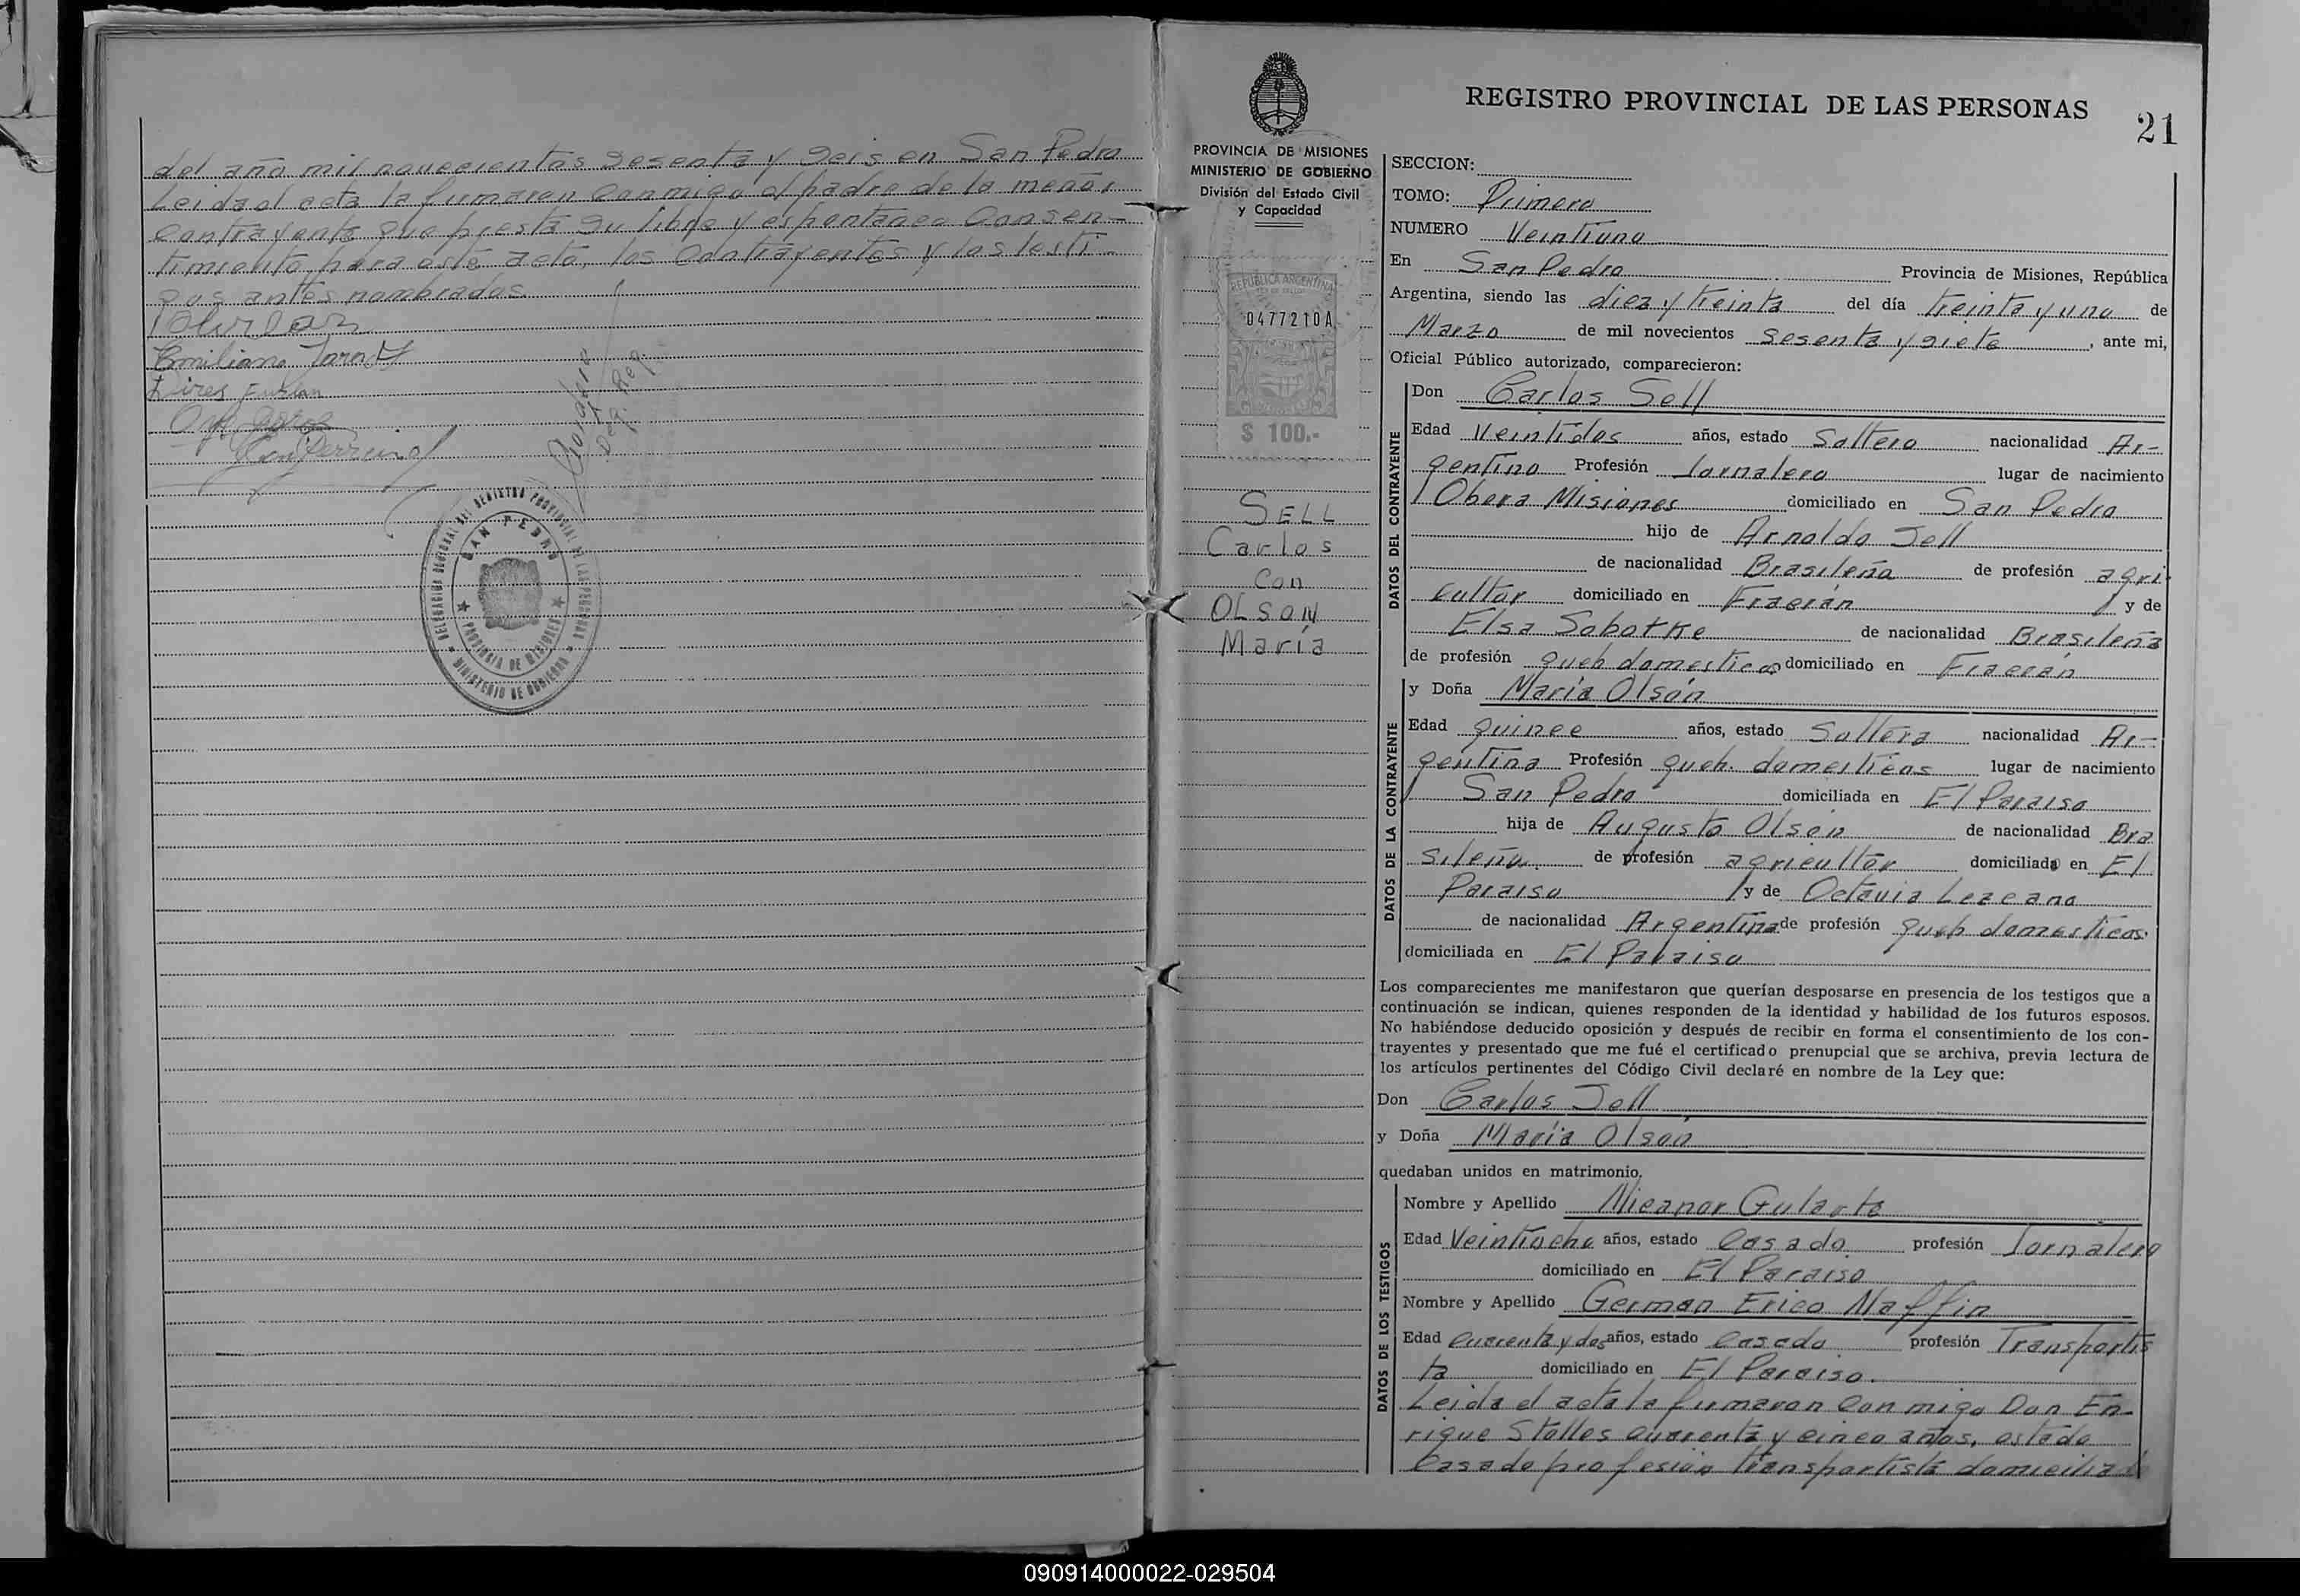 del año mil novecientos sesenta y seis en San Pedro
Leida el acta la firmaron conmigo el padre de la menor
contrayente que presta su libre y espontaneo consen-
timiento para este acto, los contrayentes y los testi-
gos antes nombrados.
Emiliano
Furlan
DELEGACION REGIONAL DEL REGISTRO PROVINCIAL DE LAS PERSONAS
SAN PEDRO
PROVINCIA DE MISIONES
MINISTERIO DE GOBIERNO
REGISTRO PROVINCIAL DE LAS PERSONAS
21
PROVINCIA DE MISIONES
MINISTERIO DE GOBIERNO
División del Estado Civil
y Capacidad
REPUBLICA ARGENTINA
0477210A
$ 100.-
SELL
Carlos
con
OLSON
María
SECCION:
TOMO: Primero
NUMERO Veintiuno
En San Pedro Provincia de Misiones, República
Argentina, siendo las diez y treinta del día treinta y uno de
Marzo de mil novecientos sesenta y siete, ante mi,
Oficial Público autorizado, comparecieron:
DATOS DEL CONTRAYENTE
Don Carlos Sell
Edad Veintidos años, estado Soltero nacionalidad Ar-
gentino Profesión Jornalero lugar de nacimiento
Obera Misiones domiciliado en San Pedro
hijo de Arnoldo Sell
de nacionalidad Brasileña de profesión agri-
cultor domiciliado en Fracrán y de
Elsa Sobotke de nacionalidad Brasileña
de profesión queh domesticos domiciliado en Fracrán
DATOS DE LA CONTRAYENTE
y Doña María Olson
Edad quince años, estado Soltera nacionalidad Ar-
gentina Profesión queh. domesticos lugar de nacimiento
San Pedro domiciliada en El Paraiso
hija de Augusto Olson de nacionalidad Bra
sileña de profesión agricultor domiciliado en El
Paraiso y de Octavia Lezcano
de nacionalidad Argentina de profesión queh domesticos
domiciliada en El Paraiso
Los comparecientes me manifestaron que querían desposarse en presencia de los testigos que a
continuación se indican, quienes responden de la identidad y habilidad de los futuros esposos.
No habiéndose deducido oposición y después de recibir en forma el consentimiento de los con-
trayentes y presentado que me fué el certificado prenupcial que se archiva, previa lectura de
los artículos pertinentes del Código Civil declaré en nombre de la Ley que:
Don Carlos Sell
y Doña María Olson
quedaban unidos en matrimonio.
DATOS DE LOS TESTIGOS
Nombre y Apellido Nicanor Gularte
Edad Veintiocho años, estado Casado profesión Jornalero
domiciliado en El Paraiso
Nombre y Apellido German Erico Maffin
Edad cuarenta y dos años, estado Casado profesión Transportis
ta domiciliado en El Paraiso.
Leida el acta la firmaron conmigo Don En-
rique Stolles cuarenta y cinco años, estado
Casado profesión transportista domiciliad
090914000022-029504